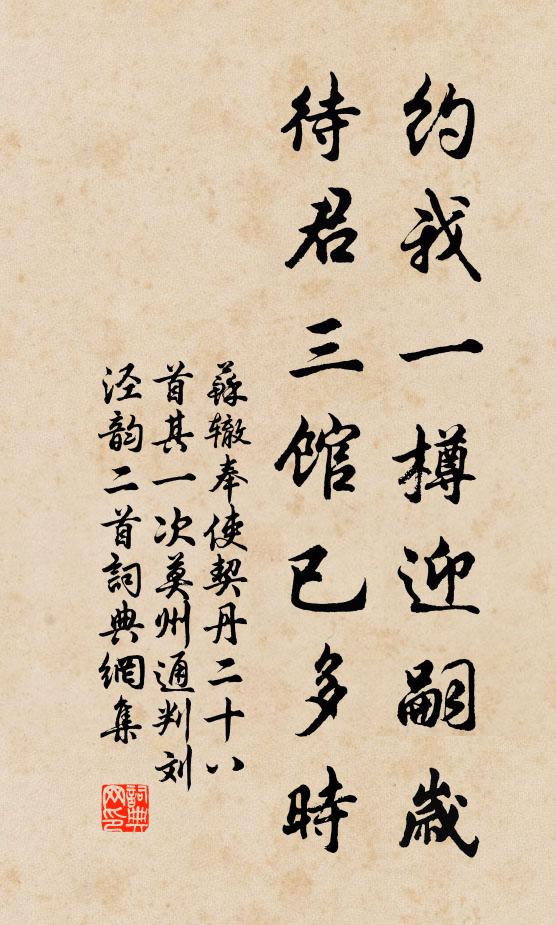 约我一樽迎嗣歲
待君三馆已多時
蘇辙奉使契丹二十八
首其一次莫州通判刘
泾韵二首詞典網集
詞典网印